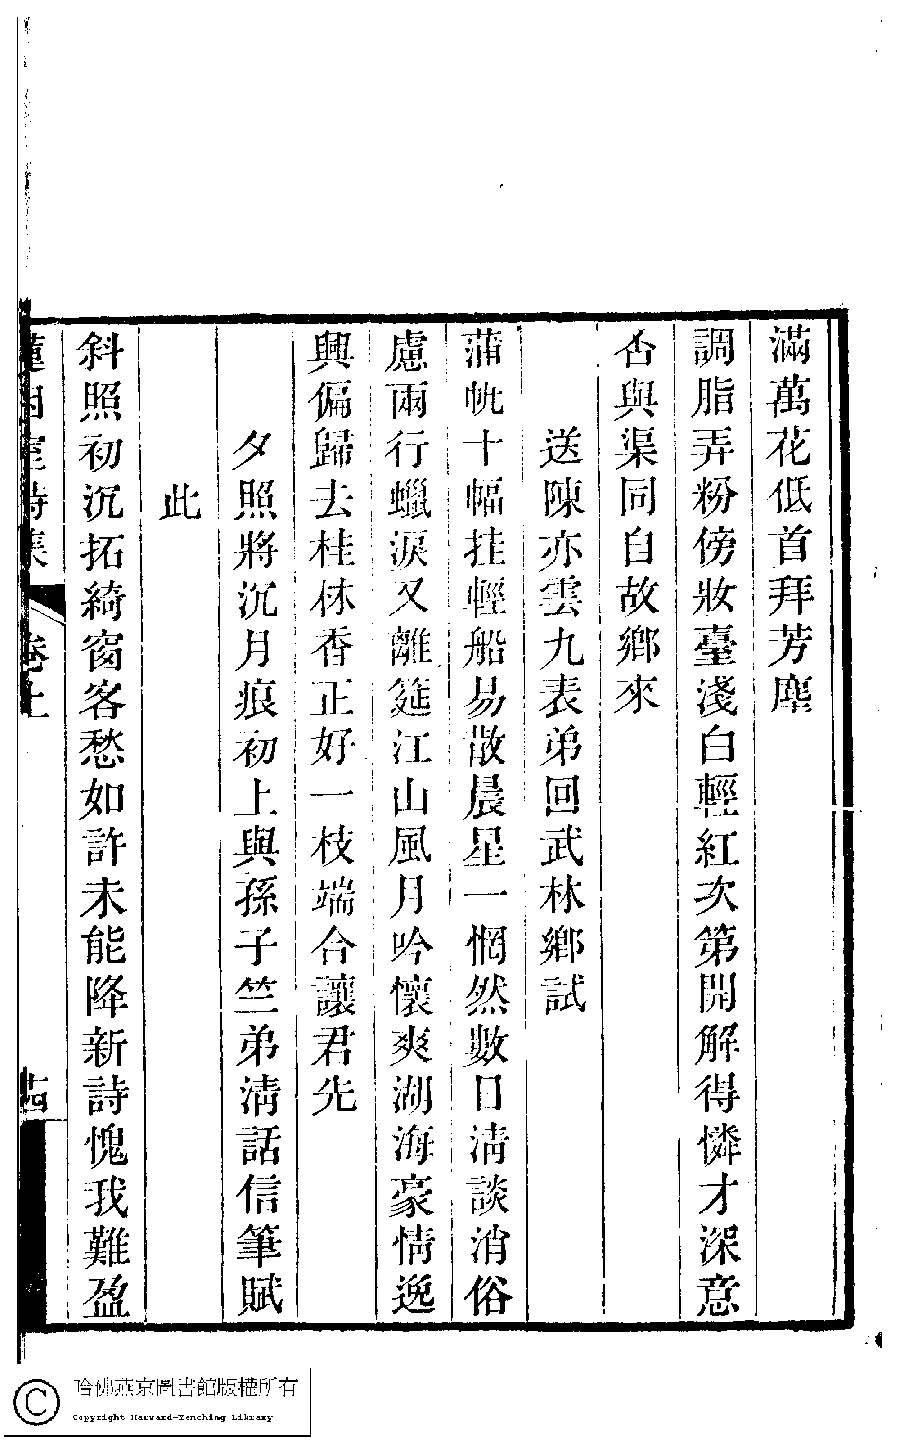 滿萬花低首拜芳塵
調脂弄粉傍妝臺淺白輕紅次第開解得憐才深意
否與渠同自故鄉來
送陳亦雲九表弟回武林鄉試
蒲帆十幅挂輕船易散晨星一惘然數日淸談消俗
慮兩行蠟淚又離筵江山風月吟懷爽湖海豪情逸
興偏歸去桂林香正好一枝端合讓君先
夕照將沉月痕初上與孫子竺弟淸話信筆賦
此
斜照初沉拓綺窗客愁如許未能降新詩愧我難盈
室詩集 卷上 十四
哈佛燕京圖書館版權所有
Copyright Harvard-Yenching Library